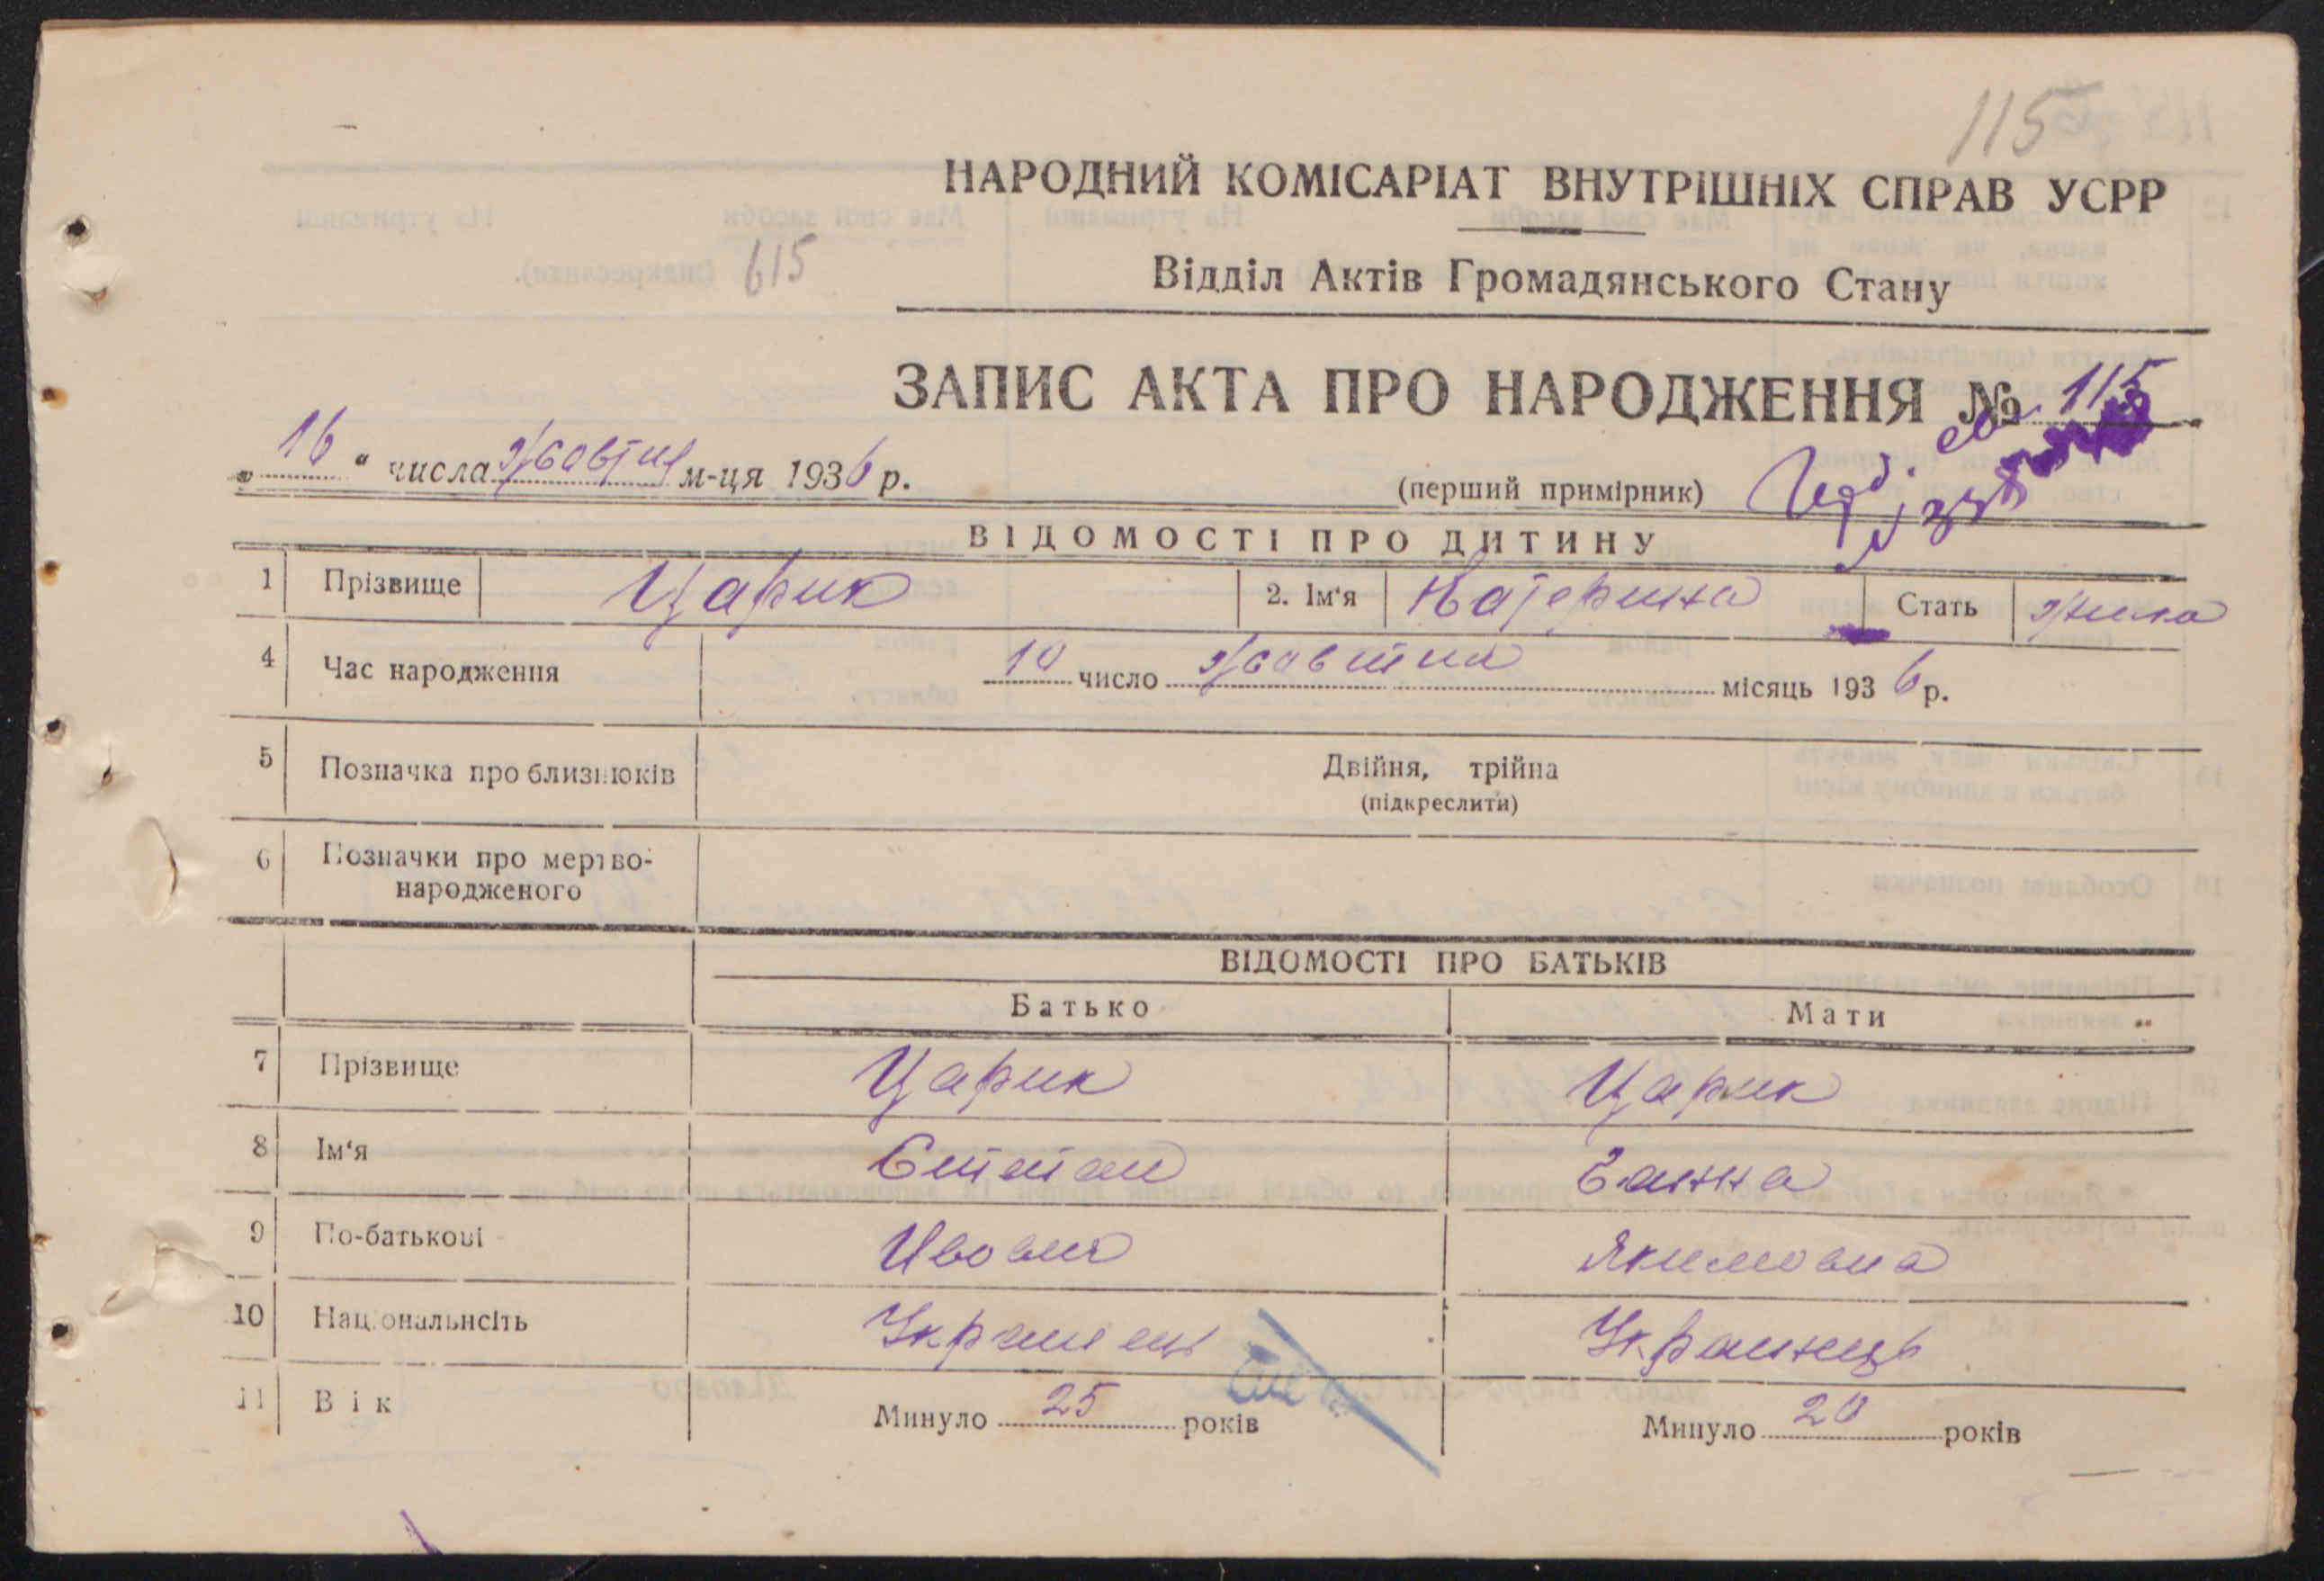 115
НАРОДНИЙ КОМІСАРІАТ ВНУТРІШНІХ СПРАВ УСРР
615
Відділ Актів Громадянського Стану
ЗАПИС АКТА ПРО НАРОДЖЕННЯ № 115
„ 16 “ числа жовтня м-ця 1936 р.
(перший примірник)
ВІДОМОСТІ ПРО ДИТИНУ
1 Прізвище Царик 2. Ім‘я Катерина Стать жіноча
4 Час народження 10 число жовтня місяць 1936 р.
5 Позначка про близнюків Двійня, трійна
(підкреслити)
6 Позначки про мертво-
народженого
ВІДОМОСТІ ПРО БАТЬКІВ
Батько Мати
7 Прізвище Царик Царик
8 Ім‘я Степан Ганна
9 По-батькові Якимовна
10 Національнсіть Українець Українець
11 Вік Минуло 25 років Минуло 20 років